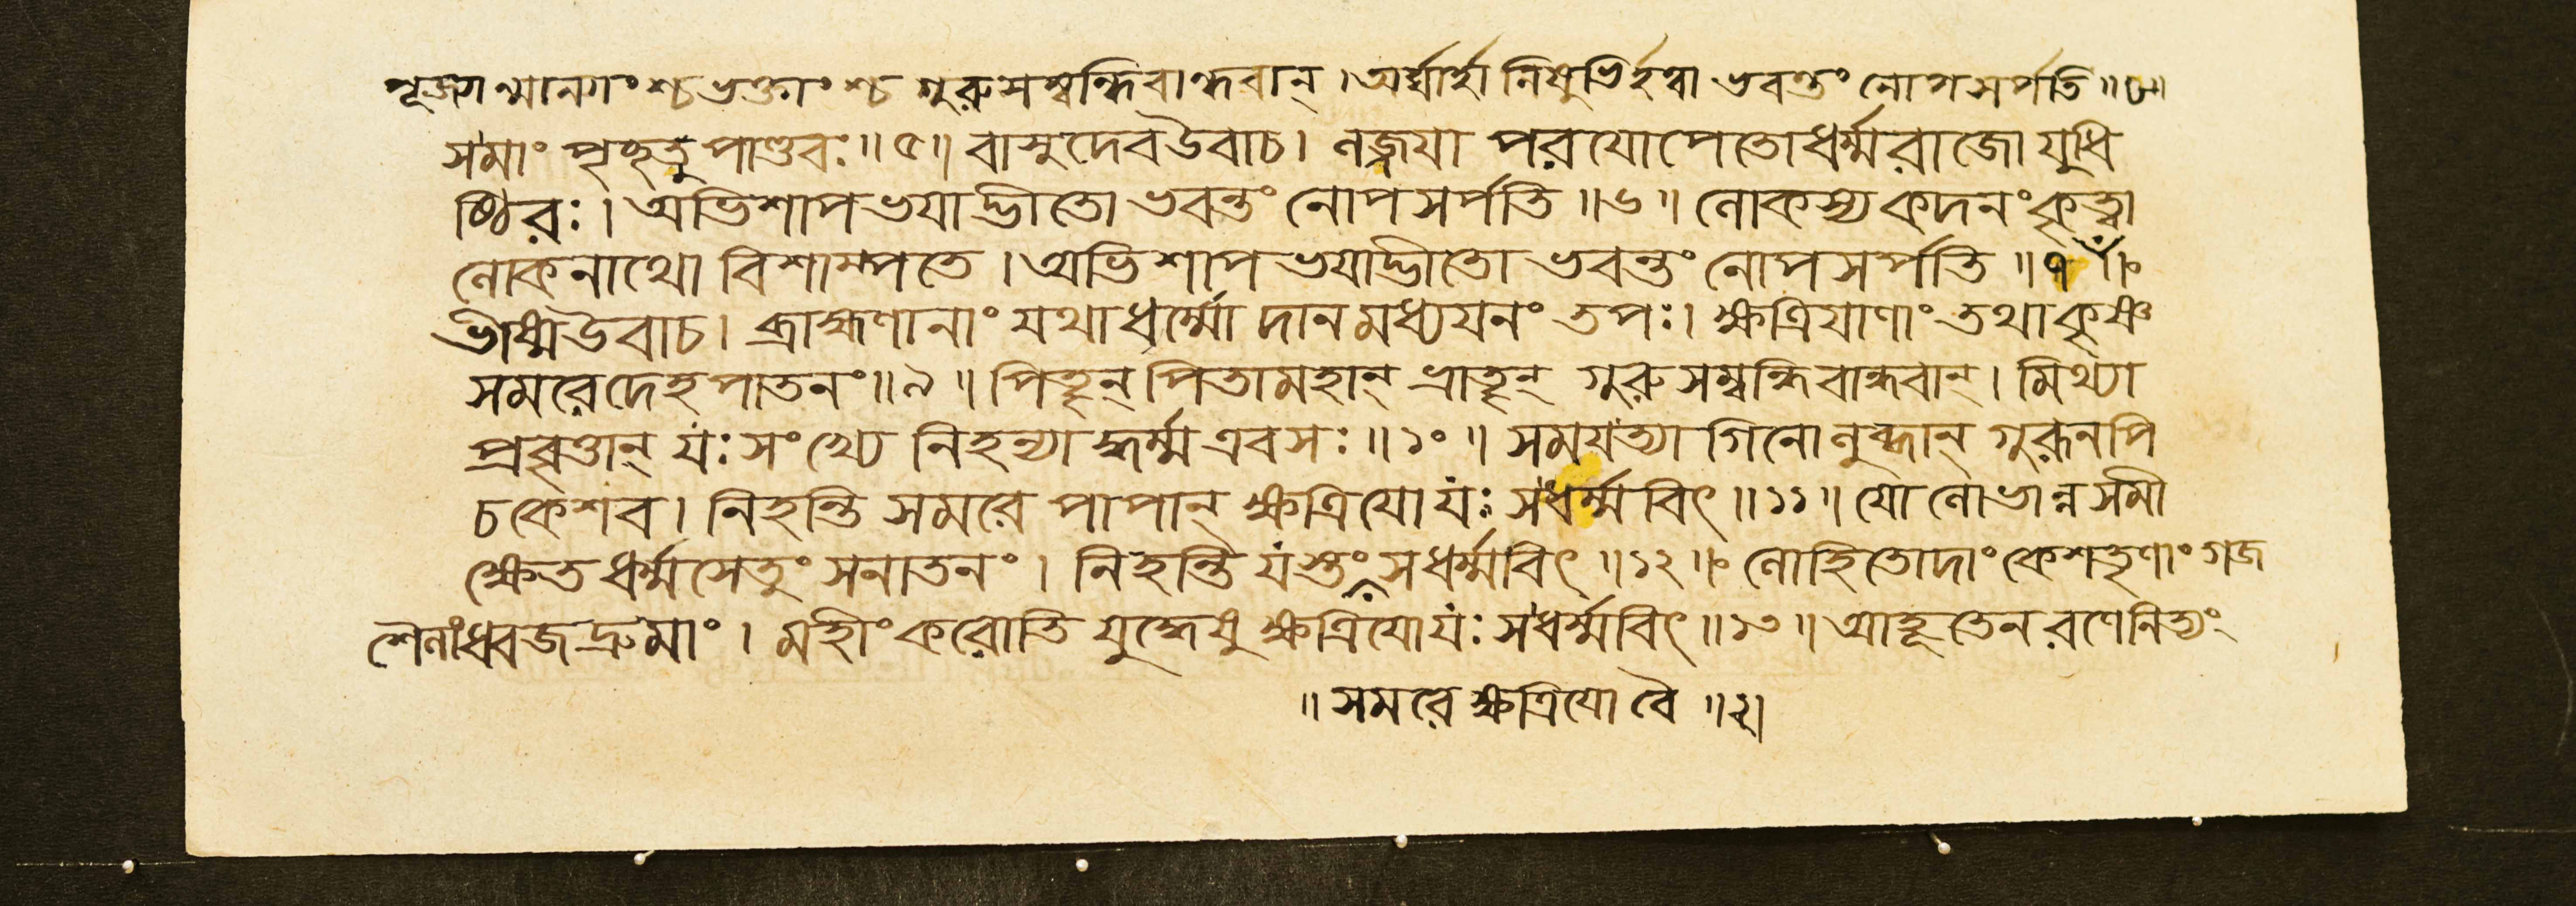 পূজ্যান্মান্যাংশ্চভক্তাংশ্চ গুরুসম্বন্ধিবান্ধবান্ । অর্ঘ্যার্হানিষুভির্হত্বা ভবন্তং নোপসর্পতি ॥৮॥
সমাং পৃচ্ছতু পাণ্ডবঃ ॥ ৫ ॥ বাসুদেবউবাচ । লজ্জযা পরযোপেতোধর্ম্মরাজো যুধি
ষ্ঠিরঃ । অভিশাপভযাদ্ভীতো ভবন্তং নোপসর্পতি ॥ ৬ ॥ লোকস্য কদনং কৃত্বা
লোকনাথো বিশাম্পতে । অভিশাপ ভযাদ্ভীতো ভবন্তং নোপসর্পতি ॥ ৭ ॥
ভীষ্মউবাচ । ব্রাহ্মণানাং যথাধর্ম্মো দানমধ্যযনং তপঃ । ক্ষত্রিযাণাং তথাকৃষ্ণ
সমরেদেহপাতনং ॥ ৯ ॥ পিতৄন্ পিতামহান্ ভ্রাতৄন্ গুরুসম্বন্ধিবান্ধবান্ । মিথ্যা
প্রবৃত্তান্ যঃ সংখ্যে নিহন্যাদ্ধর্ম্মএবসঃ ॥ ১০ ॥ সময়ত্যাগিনোলুব্ধান্ গুরূনপি
চকেশব । নিহন্তি সমরে পাপান্ ক্ষত্রিযো যঃ সধর্ম্মবিৎ ॥ ১১ ॥ যোলোভান্নসমী
ক্ষেত ধর্ম্মসেতুং সনাতনং । নিহন্তি যস্তং সধর্ম্মবিৎ ॥ ১২ ॥ লোহিতোদাং কেশতৃণাং গজ
শৈলাংধ্বজদ্রুমাং । মহীং করোতি যুদ্ধেষু ক্ষত্রিযোযঃ সধর্ম্মবিৎ ॥ ১৩ ॥ আহূতেন রণেনিত্যং
॥ সমরে ক্ষত্রিযো বৈ ॥ ২।